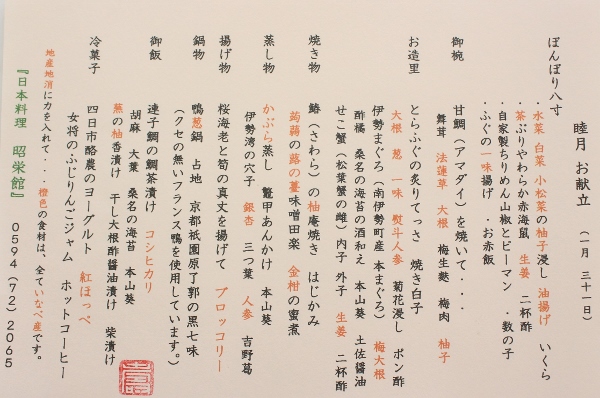 睦月 お献立 （一月 三十一日）
ぼんぼり八寸
・水菜 白菜 小松菜の柚子浸し 油揚げ いくら
・茶ぶりやわらか赤海鼠 生姜 二杯酢
・自家製ちりめん山椒とピーマン ・数の子
・ふぐの一味揚げ ・お赤飯
御椀 甘鯛（アマダイ）を焼いて．．．
舞茸 法蓮草 大根 梅生麩 梅肉 柚子
お造里 とらふぐの炙りてっさ 焼き白子
大根 葱 一味 熨斗人参 菊花浸し ポン酢
伊勢まぐろ（南伊勢町産 本まぐろ） 梅大根
酢橘 桑名の海苔の酒和え 本山葵 土佐醤油
せこ蟹（松葉蟹の雌）内子 外子 生姜 二杯酢
焼き物 鰆（さわら）の柚庵焼き はじかみ
蒟蒻の蕗の薹味噌田楽 金柑の蜜煮
蒸し物 かぶら蒸し 鼈甲あんかけ 本山葵
伊勢湾の穴子 銀杏 三つ葉 人参 吉野葛
揚げ物 桜海老と筍の真丈を揚げて ブロッコリー
鍋物 鴨葱鍋 占地 京都祇園原了郭の黒七味
（クセの無いフランス鴨を使用しています。）
御飯 連子鯛の鯛茶漬け コシヒカリ
胡麻 大葉 桑名の海苔 本山葵
蕪の柚香漬け 干し大根酢醤油漬け 柴漬け
冷菓子 四日市酪農のヨーグルト 紅ほっぺ
女将のふじりんごジャム ホットコーヒー
地産地消に力を入れて．．．橙色の食材は、全ていなべ産です。
『日本料理 昭栄館』 0594（72）2065